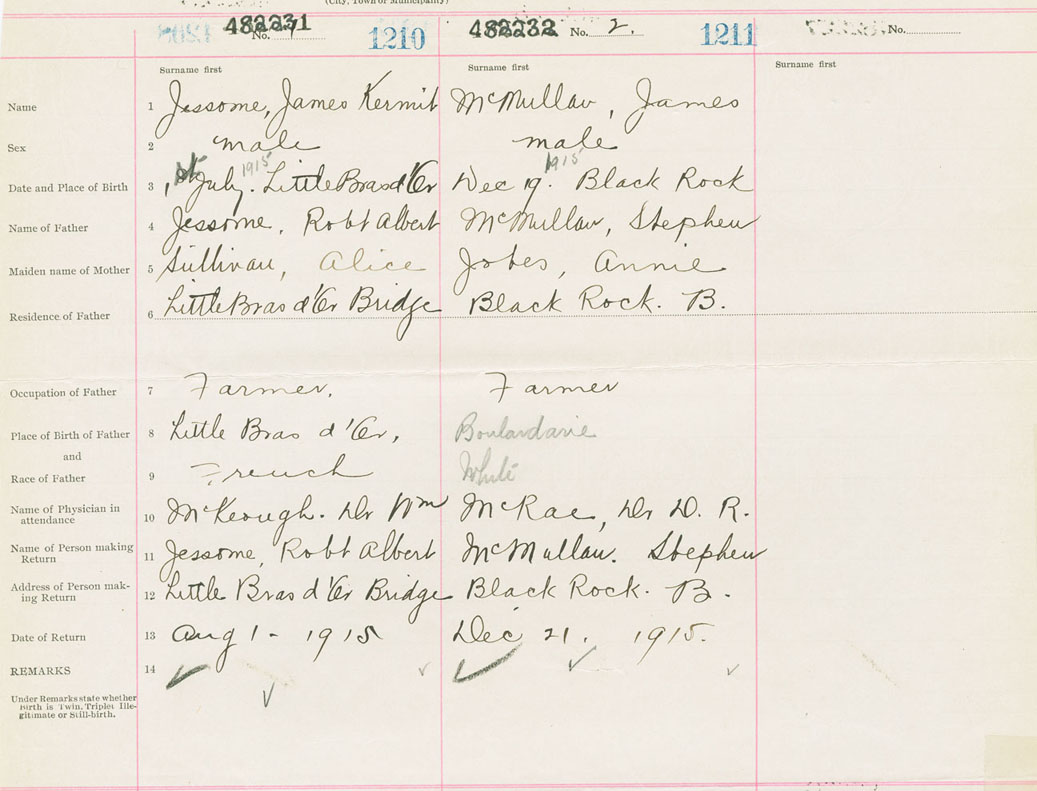 (City, Town or Municipality)
482231 No. 1 1210 482232 No. 2. 1211 No.
Surname first Surname first Surname first
Name 1 Jessome, James Kermit McMullan, James
Sex 2 male male
1915 1915
Date and Place of Birth 3 1st July. Little Bras d'Or Dec 19. Black Rock
Name of Father 4 Jessome, Robt Albert McMullan, Stephen
Maiden name of Mother 5 Sullivan, Alice Jobes, Annie
Residence of Father 6 Little Bras d'Or Bridge Black Rock. B.
Occupation of Father 7 Farmer. Farmer
Place of Birth of Father 8 Little Bras d'Or, Boulardarie
and
Race of Father 9 French White
Name of Physician in attendance 10 McKeough. Dr Wm McRae, Dr D. R.
Name of Person making Return 11 Jessome, Robt Albert McMullan. Stephen
Address of Person mak-
ing Return 12 Little Bras d'Or Bridge Black Rock. B.
Date of Return 13 Aug 1 - 1915 Dec 21. 1915.
REMARKS 14
Under Remarks state whether
Birth is Twin, Triplet Ille-
gitimate or Still-birth.